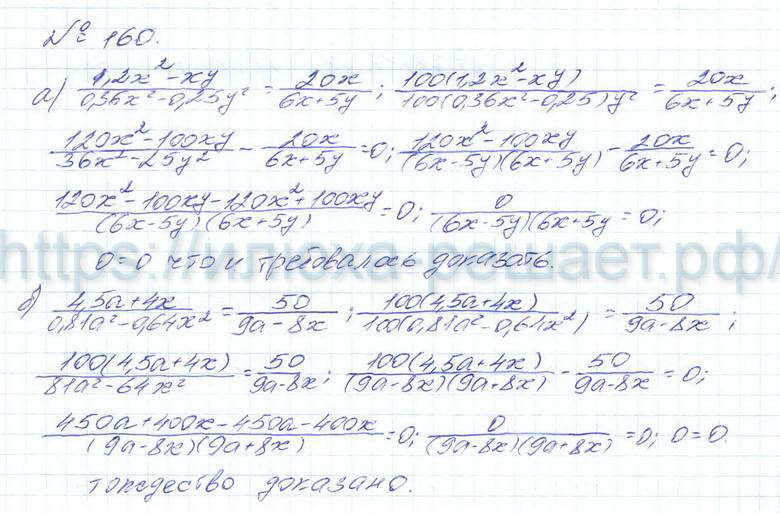 № 160.
а) (1,2x²-xy)/(0,36x²-0,25y²) = 20x/(6x+5y); 100(1,2x²-xy)/(100(0,36x²-0,25)y²) = 20x/(6x+5y);
(120x²-100xy)/(36x²-25y²) - 20x/(6x+5y) = 0; (120x²-100xy)/((6x-5y)(6x+5y)) - 20x/(6x+5y) = 0;
(120x²-100xy-120x²+100xy)/((6x-5y)(6x+5y)) = 0; 0/((6x-5y)(6x+5y) = 0;
https://илюха-решает.рф/
0=0 что и требовалось доказать.
б) (4,5a+4x)/(0,81a²-0,64x²) = 50/(9a-8x); 100(4,5a+4x)/(100(0,81a²-0,64x²)) = 50/(9a-8x);
100(4,5a+4x)/(81a²-64x²) = 50/(9a-8x); 100(4,5a+4x)/((9a-8x)(9a+8x)) - 50/(9a-8x) = 0;
(450a+400x-450a-400x)/((9a-8x)(9a+8x)) = 0; 0/((9a-8x)(9a+8x)) = 0; 0=0.
тождество доказано.